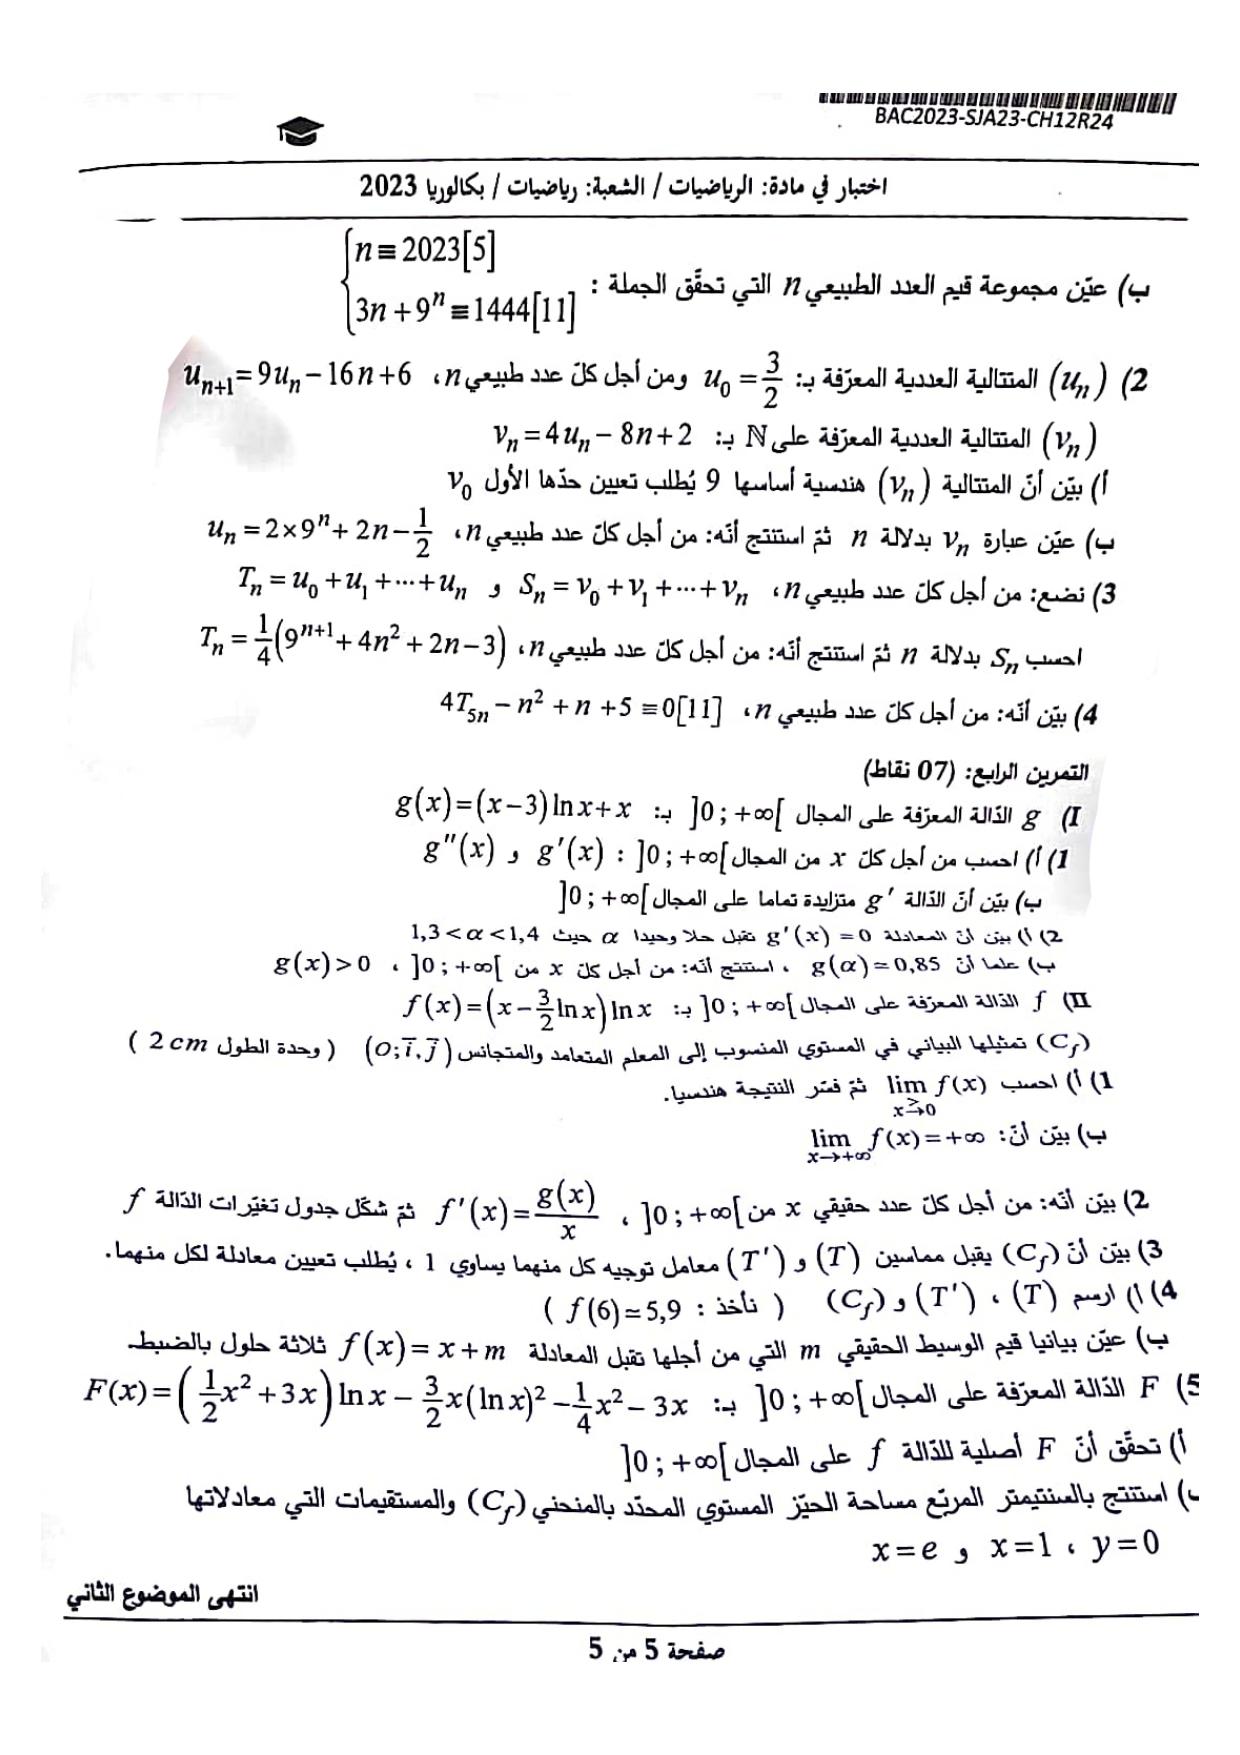 BAC2023-SJA23-CH12R24
اختبار في مادة: الرياضيات / الشعبة: رياضيات / بكالوريا 2023
ب) عيّن مجموعة قيم العدد الطبيعي n التي تحقّق الجملة : { n ≡ 2023[5]
3n + 9ⁿ ≡ 1444[11]
2) (uₙ) المتتالية العددية المعرّفة بـ: u₀ = 3/2 ومن أجل كلّ عدد طبيعي n، uₙ₊₁ = 9uₙ − 16n + 6
(vₙ) المتتالية العددية المعرّفة على ℕ بـ: vₙ = 4uₙ − 8n + 2
أ) بيّن أنّ المتتالية (vₙ) هندسية أساسها 9 يُطلب تعيين حدّها الأول v₀
ب) عيّن عبارة vₙ بدلالة n ثمّ استنتج أنّه: من أجل كلّ عدد طبيعي n، uₙ = 2×9ⁿ + 2n − 1/2
3) نضع: من أجل كلّ عدد طبيعي n، Sₙ = v₀ + v₁ + ··· + vₙ و Tₙ = u₀ + u₁ + ··· + uₙ
احسب Sₙ بدلالة n ثمّ استنتج أنّه: من أجل كلّ عدد طبيعي n، Tₙ = 1/4(9ⁿ⁺¹ + 4n² + 2n − 3)
4) بيّن أنّه: من أجل كلّ عدد طبيعي n، 4T₅ₙ − n² + n + 5 ≡ 0[11]
التمرين الرابع: (07 نقاط)
I) g الدّالة المعرّفة على المجال ]0 ; +∞[ بـ: g(x) = (x−3)ln x + x
1) أ) احسب من أجل كلّ x من المجال ]0 ; +∞[ : g′(x) و g″(x)
ب) بيّن أنّ الدّالة g′ متزايدة تماما على المجال ]0 ; +∞[
2) أ) بيّن أنّ المعادلة g′(x) = 0 تقبل حلا وحيدا α حيث 1,3 < α < 1,4
ب) علما أنّ g(α) ≃ 0,85 ، استنتج أنّه: من أجل كلّ x من ]0 ; +∞[ ، g(x) > 0
II) f الدّالة المعرّفة على المجال ]0 ; +∞[ بـ: f(x) = (x − 3/2 ln x) ln x
(C_f) تمثيلها البياني في المستوي المنسوب إلى المعلم المتعامد والمتجانس (O; i⃗, j⃗) ( وحدة الطول 2cm )
1) أ) احسب lim f(x) x→>0 ثمّ فسّر النتيجة هندسيا.
ب) بيّن أنّ: lim f(x) = +∞ x→+∞
2) بيّن أنّه: من أجل كلّ عدد حقيقي x من ]0 ; +∞[ ، f′(x) = g(x)/x ثمّ شكّل جدول تغيّرات الدّالة f
3) بيّن أنّ (C_f) يقبل مماسين (T) و (T′) معامل توجيه كل منهما يساوي 1 ، يُطلب تعيين معادلة لكل منهما.
4) أ) ارسم (T) ، (T′) و (C_f) ( نأخذ : f(6) ≃ 5,9 )
ب) عيّن بيانيا قيم الوسيط الحقيقي m التي من أجلها تقبل المعادلة f(x) = x + m ثلاثة حلول بالضبط.
5) F الدّالة المعرّفة على المجال ]0 ; +∞[ بـ: F(x) = (1/2 x² + 3x) ln x − 3/2 x(ln x)² − 1/4 x² − 3x
أ) تحقّق أنّ F أصلية للدّالة f على المجال ]0 ; +∞[
ب) استنتج بالسنتيمتر المربّع مساحة الحيّز المستوي المحدّد بالمنحني (C_f) والمستقيمات التي معادلاتها
y = 0 ، x = 1 و x = e
انتهى الموضوع الثاني
صفحة 5 من 5